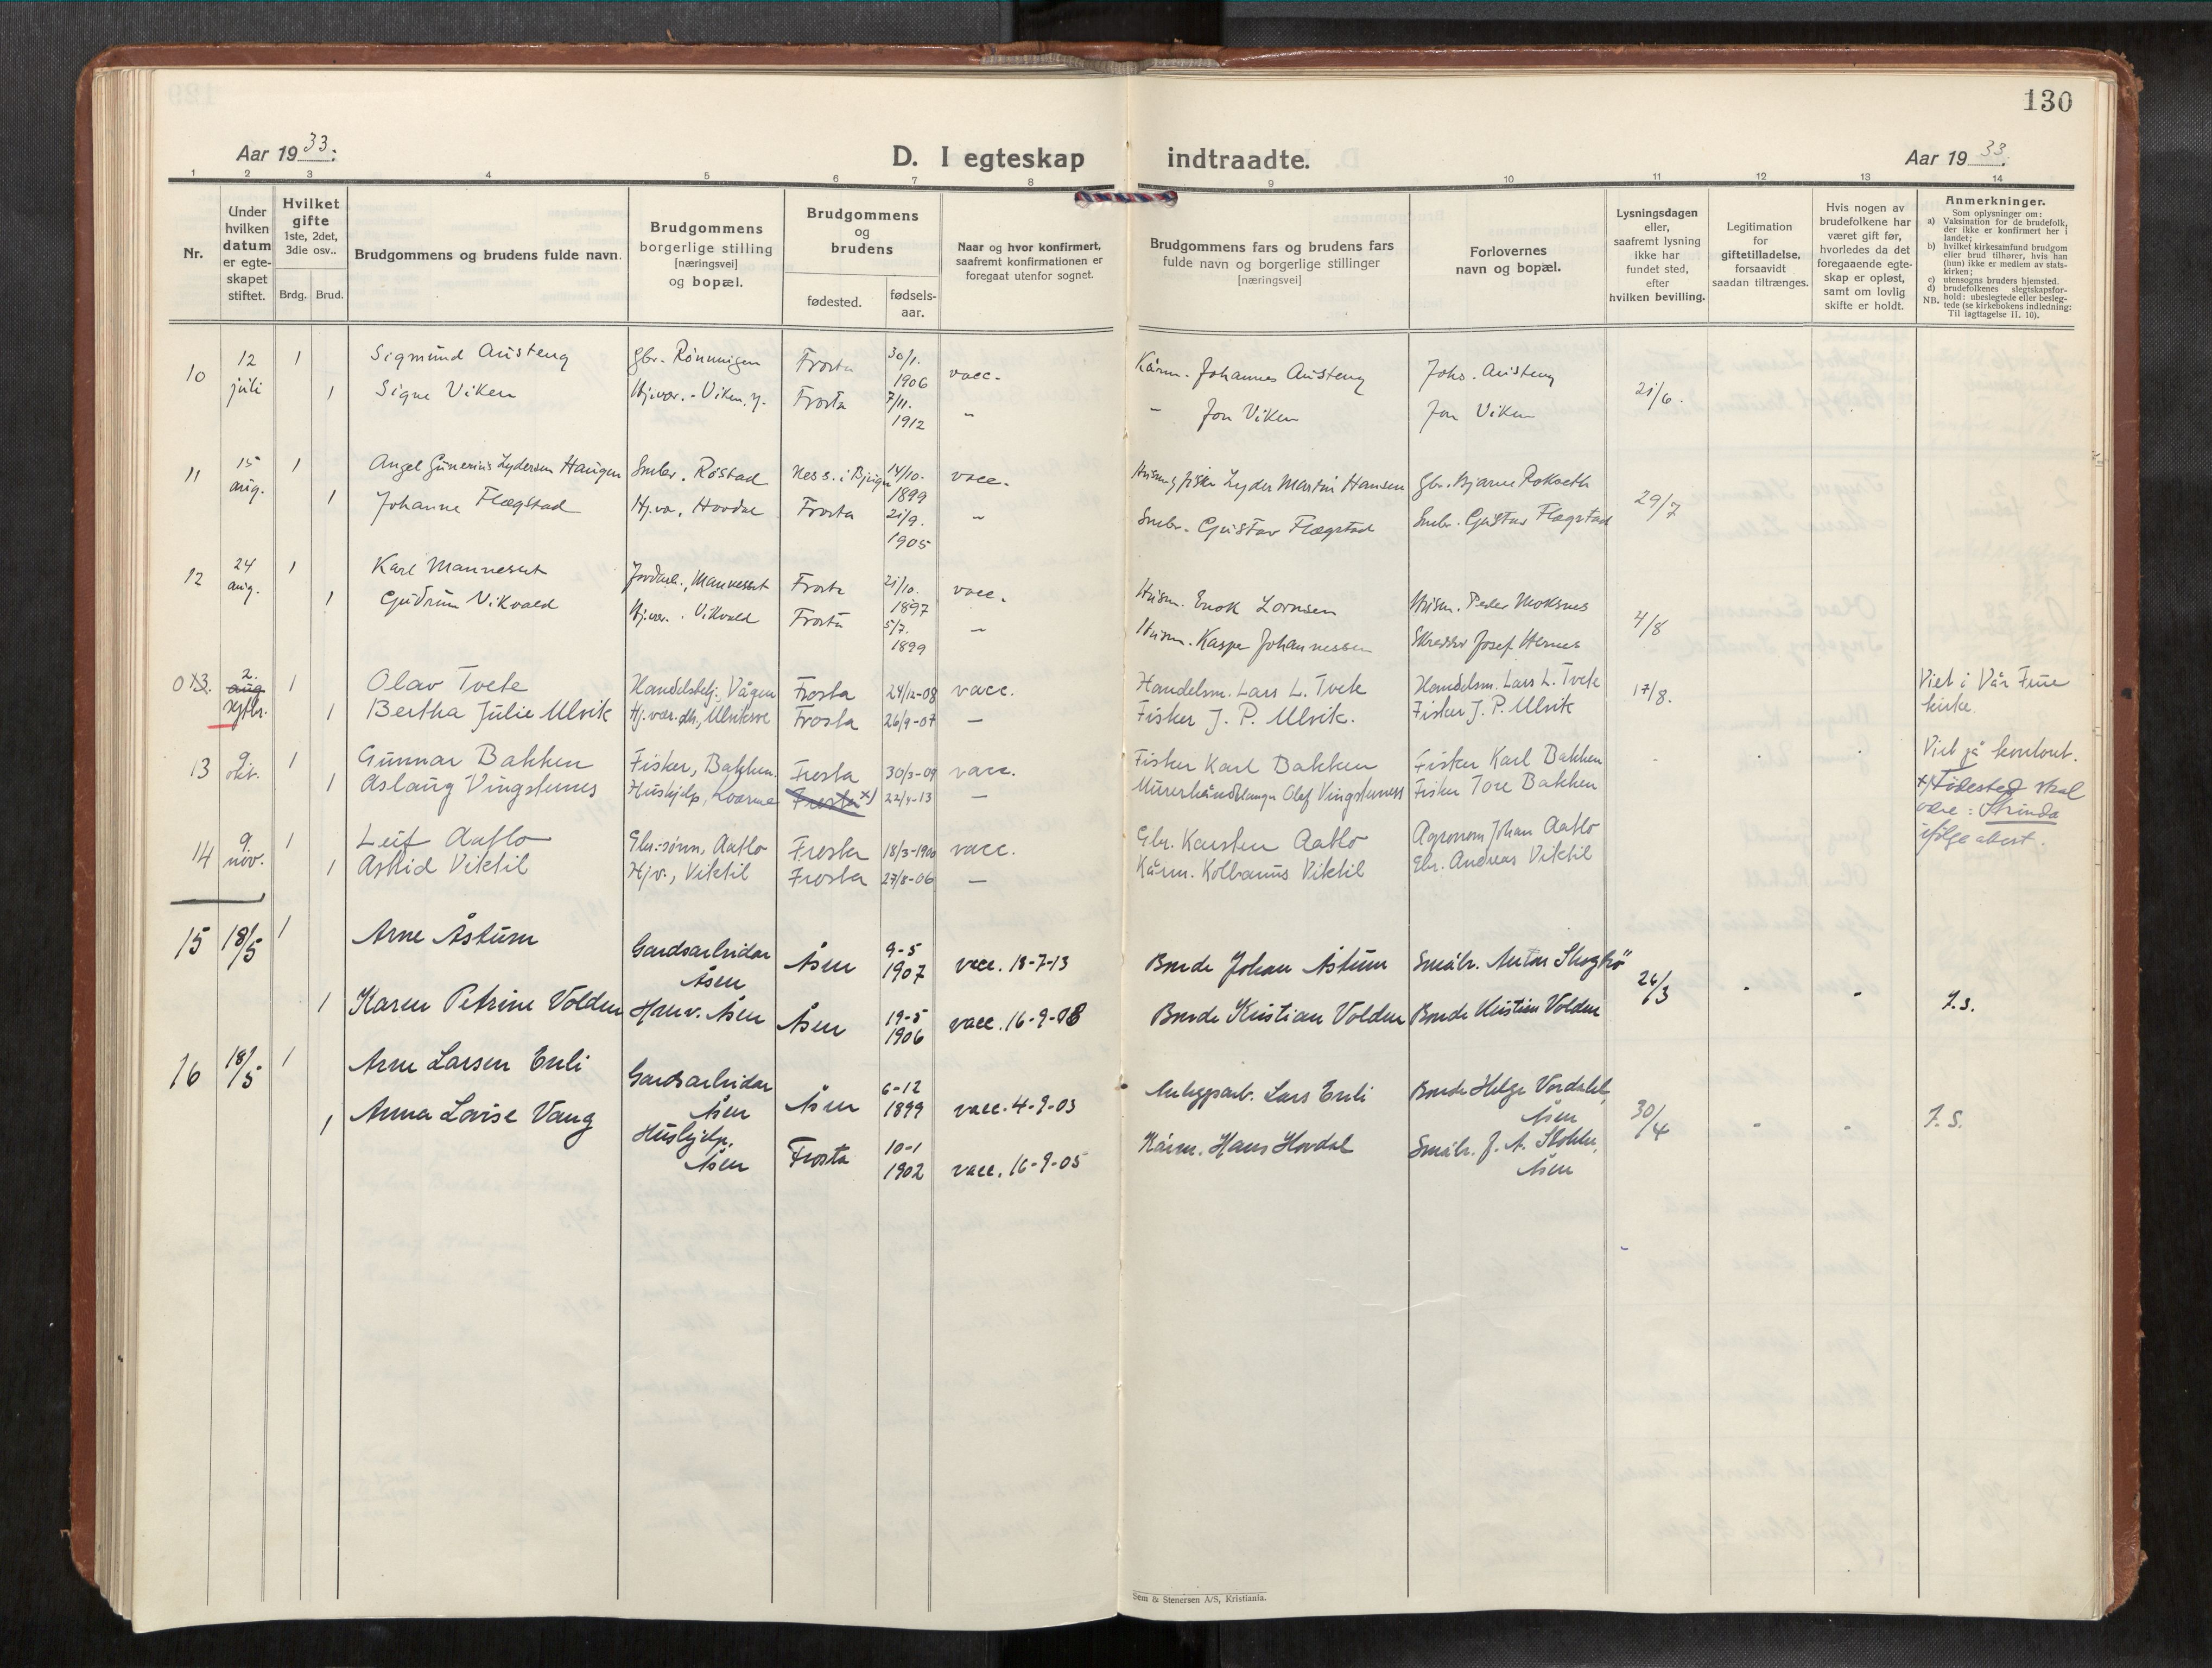 130
Aar 1933:
D. I egteskap indtraadte.
Aar 1933.
1 2 3 4 5 6 7 8 9 10 11 12 13 14
Nr.
Under hvilken datum er egte-skapet stiftet.
Hvilket gifte 1ste, 2det, 3die osv..
Brdg. Brud.
Brudgommens og brudens fulde navn.
Brudgommens borgerlige stilling [næringsvei] og bopæl.
Brudgommens og brudens
fødested.
fødsels-aar.
Naar og hvor konfirmert, saafremt konfirmationen er foregaat utenfor sognet.
Brudgommens fars og brudens fars fulde navn og borgerlige stillinger [næringsvei]
Forlovernes navn og bopæl.
Lysningsdagen eller, saafremt lysning ikke har fundet sted, efter hvilken bevilling.
Legitimation for giftetilladelse, forsaavidt saadan tiltrænges.
Hvis nogen av brudefolkene har været gift før, hvorledes da det foregaaende egte-skap er opløst, samt om lovlig skifte er holdt.
Anmerkninger.
Som oplysninger om:
a) Vaksination for de brudefolk, der ikke er konfirmert her i landet;
b) hvilket kirkesamfund brudgom eller brud tilhører, hvis han (hun) ikke er medlem av stats-kirken;
c) utensogns bruders hjemsted.
d) brudefolkenes slegtskapsfor-hold: ubeslegtede eller besleg-tede (se kirkebokens indledning: Til iagttagelse II. 10).
NB.
10 12 juli 1 Sigmund Austeng Gbr. Rønningen Frosta 30/1. 1906 vacc. Kårm. Johannes Austeng Johs. Austeng 21/6.
1 Signe Viken Hj.vær. - Viken, y. Frosta 7/11. 1912 " - Jon Viken Jon Viken
11 15 aug. 1 Angel Gunerius Lydersen Haugen Smbr. Røstad Ness. i Bjugn 14/10. 1899 vacc. Husm. og fisker Lyder Martin Hansen Gbr. Bjarne Rokseth 29/7
1 Johanne Flægstad Hj.v., Hovdal Frosta 21/9. 1905 " Smbr. Gustav Flægstad Smbr. Gustav Flægstad
12 24 aug. 1 Karl Mannesset Jordarb., Mannesset Frosta 21/10. 1897 vacc. Husm. Enok Lornsen Husm. Peder Moksnes 4/8
1 Gudrun Vikvald Hj.vær. Vikvald Frosta 5/7. 1899 " Husm. Kasper Johannessen Skredder Josef Hernes
0 13. 2. aug septbr. 1 Olav Tvete Handelsbetj. Vågen Frosta 24/12-08 vacc. Handelsm. Lars L. Tvete Handelsm. Lars L. Tvete 17/8. Viet i Vår Frue kirke.
1 Bertha Julie Ulvik Hj.vær. dtr., Ulvik Frosta 26/9-07 — Fisker J. P. Ulvik. Fisker J. P. Ulvik
13 9. okt. 1 Gunnar Bakken Fisker, Bakken. Frosta 30/3-09 vacc. Fisker Karl Bakken Fisker Karl Bakken Viet på kontoret.
1 Aslaug Vingsternes Hushjelp, Kvarme Frosta x) 22/4-13 — Murerhåndlanger Olaf Vingsterness Fisker Tore Bakken x) Fødested skal være: Strinda ifølge attest.
14 9. nov. 1 Leif Aatlo Gbr.-sønn, Aatlo Frosta 18/3-1900 vacc. Gbr. Karsten Aatlo Agronom Johan Aatlo
1 Astrid Viktil Hjv., Viktil Frosta 27/8-06 — Kårm. Kolbanus Viktil Gbr. Andreas Viktil
15 18/5 1 Arne Åstum Gardsarbidar Åsen Åsen 9-5 1907 vacc. 18-7-13 Bonde Johan Åstum Småbr. Anton Skogbø 26/3
1 Karen Petrine Volden Husv. Åsen Åsen 19-5 1906 vacc. 16-9-08 Bonde Kristian Volden Bonde Kristian Volden I.s.
16 18/5 1 Arne Larsen Enli Gardsarbidar Åsen Åsen 6-12 1899 vacc. 4-9-03 Anleggsarb. Lars Enli Bonde Helge Vordahl, Åsen 30/4
1 Anna Lovise Vang Hushjelp, Åsen Frosta 10-1 1902 vacc. 16-9-05 Kårm. Hans Hovdal Småbr. J. A. Åsen I. S.
Sem & Stenersen A/S, Kristiania.